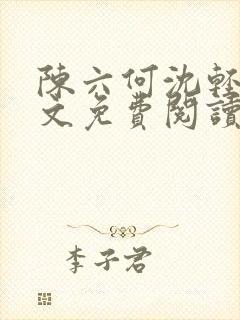 陳六何沈輕
文免費閱讀
李子君